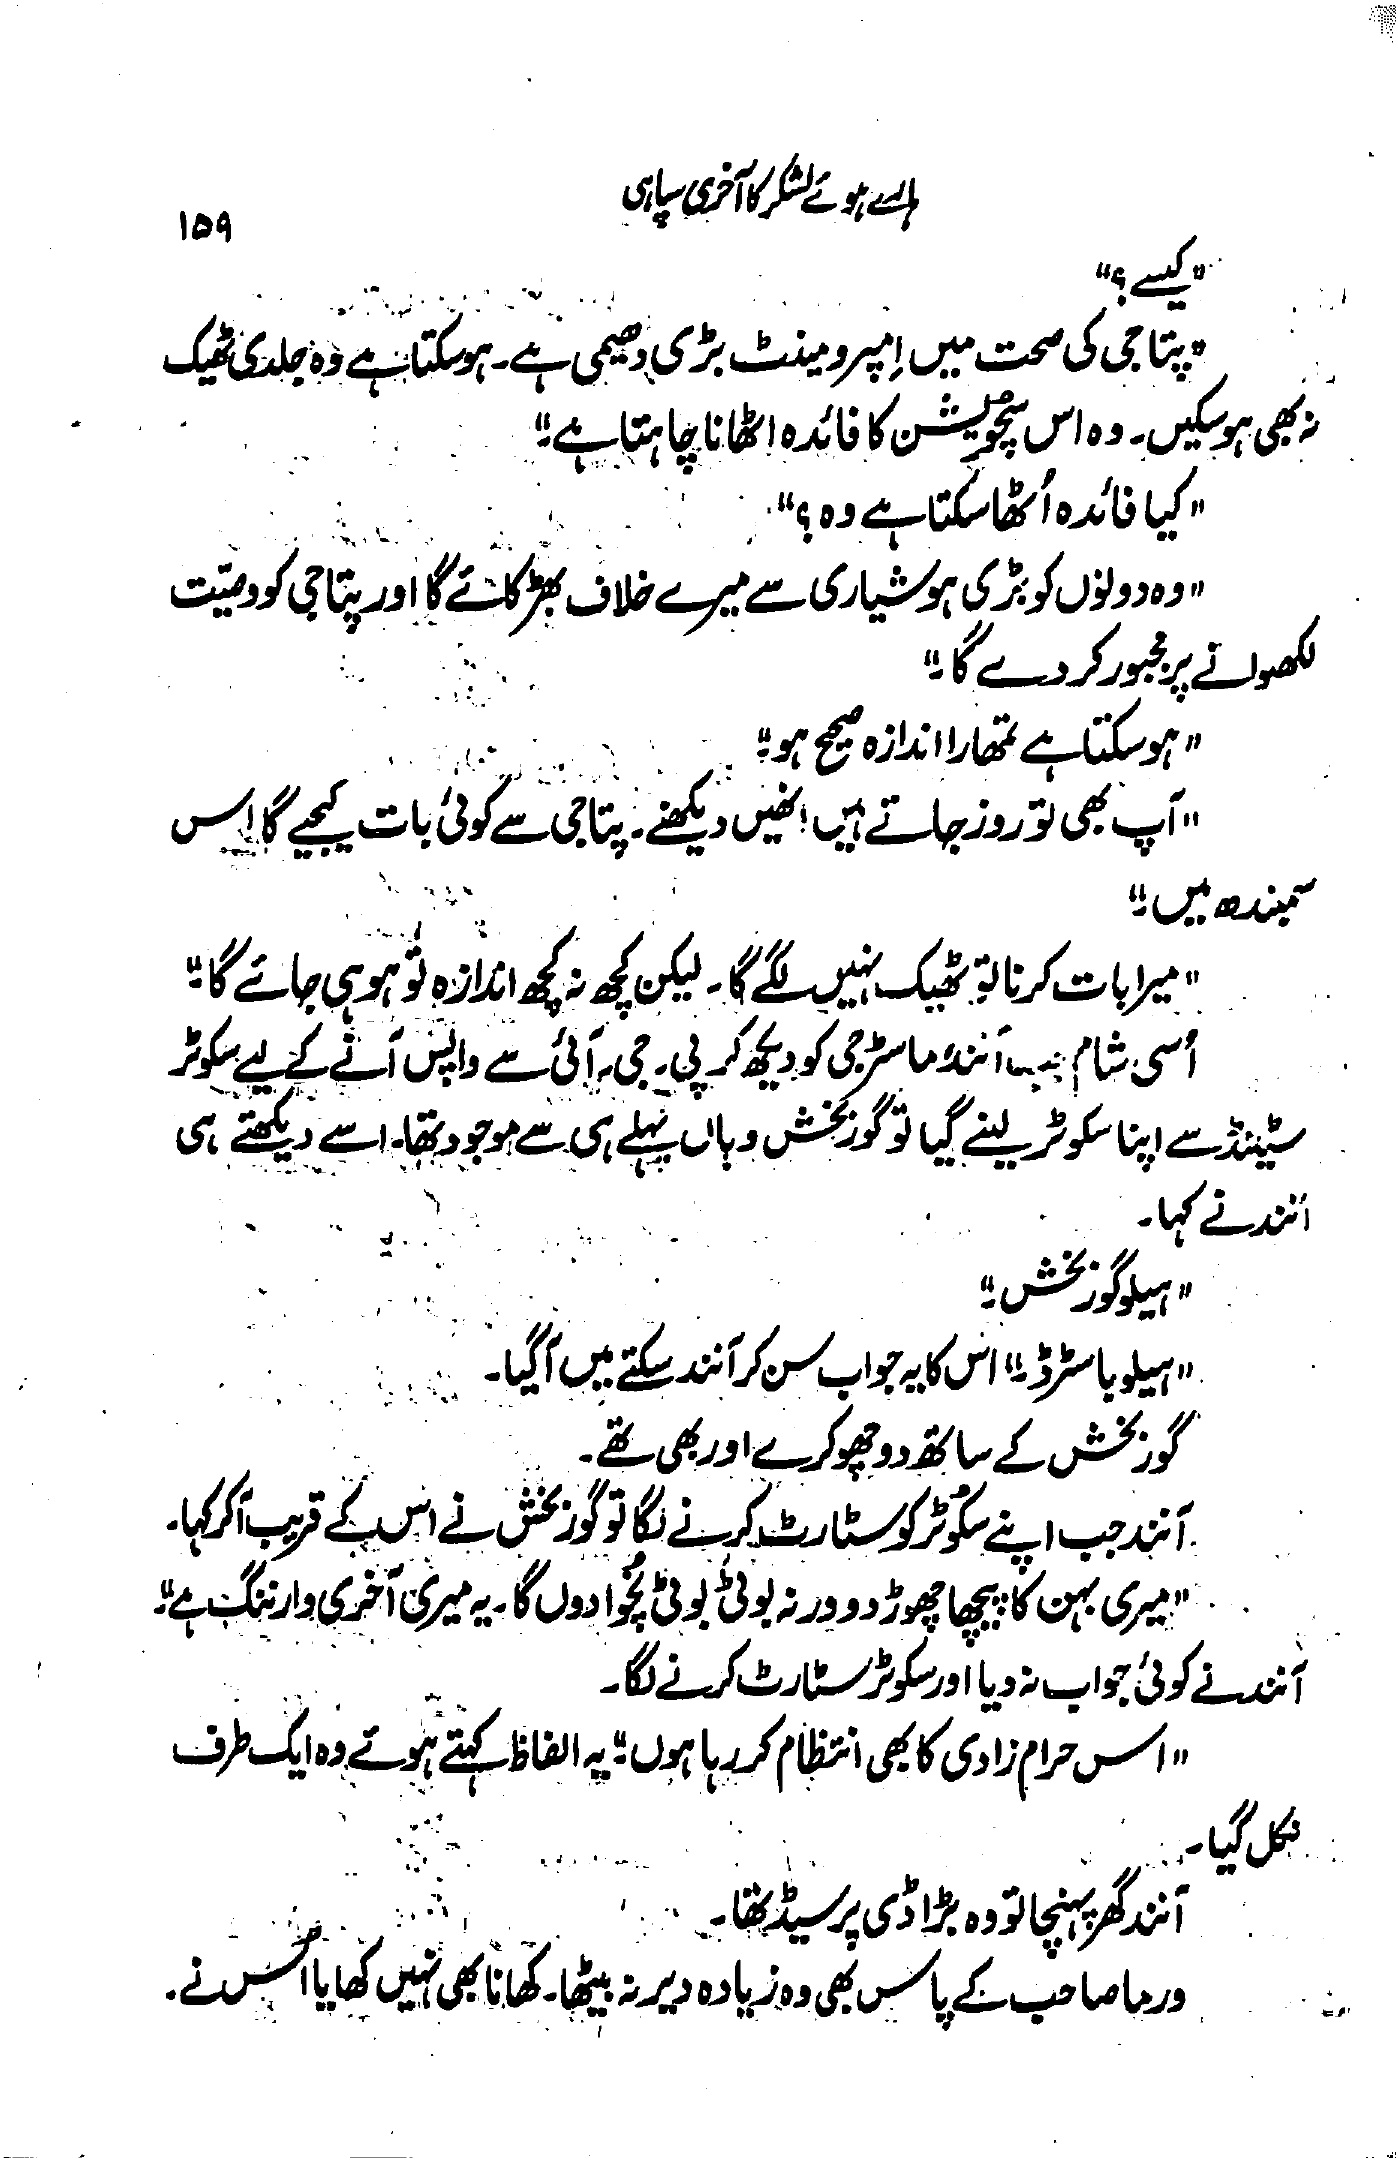 ہارے ہوئے لشکر کا آخری سپاہی
۱۵۹
"کیسے؟"
"پتاجی کی صحت میں اِمپرومینٹ بڑی دھیمی ہے۔ ہوسکتا ہے وہ جلدی ٹھیک
نہ بھی ہوسکیں۔ وہ اس سچویشن کا فائدہ اٹھانا چاہتا ہے۔"
"کیا فائدہ اُٹھا سکتا ہے وہ؟"
"وہ دونوں کو بڑی ہوشیاری سے میرے خلاف بھڑکائے گا اور پتاجی کو وصیّت
لکھوانے پر مجبور کر دے گا۔"
"ہوسکتا ہے تمھارا اندازہ صحیح ہو۔"
"آپ بھی تو روز جاتے ہیں اُنھیں دیکھنے۔ پتاجی سے کوئی بات کیجیے گا اس
سمبندھ میں۔"
"میرا بات کرنا تو ٹھیک نہیں لگے گا۔ لیکن کچھ نہ کچھ اندازہ تو ہو ہی جائے گا۔"
اُسی شام جب آنند ماسٹرجی کو دیکھ کر پی۔ جی۔ آئی سے واپس آنے کے لیے سکوٹر
سٹینڈ سے اپنا سکوٹر لینے گیا تو گوربخش وہاں پہلے ہی سے موجود تھا۔ اسے دیکھتے ہی
آنند نے کہا۔
"ہیلو گوربخش۔"
"ہیلو باسٹرڈ۔" اس کا یہ جواب سن کر آنند سکتے میں آگیا۔
گوربخش کے ساتھ دو چھوکرے اور بھی تھے۔
آنند جب اپنے سکوٹر کو سٹارٹ کرنے لگا تو گوربخش نے اس کے قریب آکر کہا۔
"میری بہن کا پیچھا چھوڑ دو ورنہ بوٹی بوٹی نُچوا دوں گا۔ یہ میری آخری وارننگ ہے۔"
آنند نے کوئی جواب نہ دیا اور سکوٹر سٹارٹ کرنے لگا۔
"اس حرام زادی کا بھی انتظام کر رہا ہوں۔" یہ الفاظ کہتے ہوئے وہ ایک طرف
نکل گیا۔
آنند گھر پہنچا تو وہ بڑا ڈی پرسیڈ تھا۔
ورما صاحب کے پاس بھی وہ زیادہ دیر نہ بیٹھا۔ کھانا بھی نہیں کھایا اُس نے۔